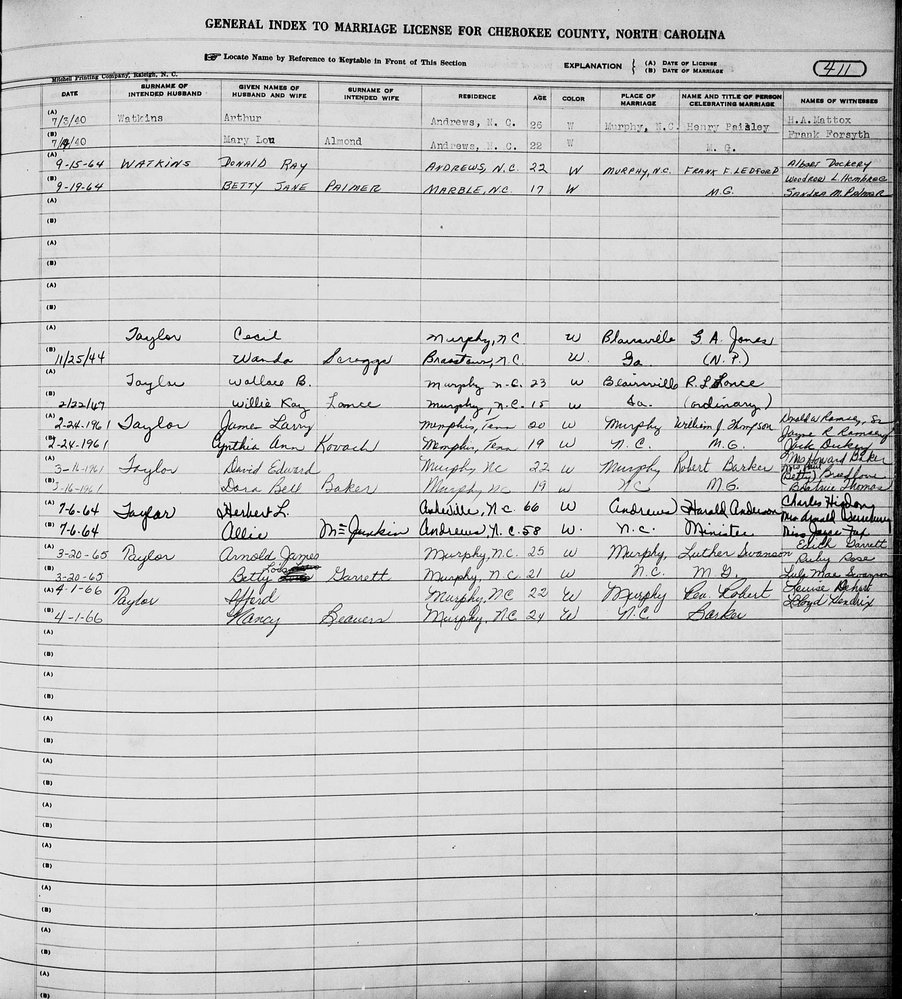 GENERAL INDEX TO MARRIAGE LICENSE FOR CHEROKEE COUNTY, NORTH CAROLINA
☞ Locate Name by Reference to Keytable in Front of This Section EXPLANATION { (A) DATE OF LICENSE (B) DATE OF MARRIAGE 411
Mitchell Printing Company, Raleigh, N. C.
DATE SURNAME OF INTENDED HUSBAND GIVEN NAMES OF HUSBAND AND WIFE SURNAME OF INTENDED WIFE RESIDENCE AGE COLOR PLACE OF MARRIAGE NAME AND TITLE OF PERSON CELEBRATING MARRIAGE NAMES OF WITNESSES
(A) 7/3/40 Watkins Arthur Andrews, N. C. 26 W Murphy, N.C. Henry Paisley H.A.Mattox
(B) Mary Lou Almond Andrews, N. C. 22 W M. G. Frank Forsyth
(A) 9-15-64 WATKINS DONALD RAY ANDREWS, N.C. 22 W MURPHY, N.C. FRANK F. LEDFORD Albert Dockery
Woodrow L Hembree
(B) 9-19-64 BETTY JANE PALMER MARBLE, N.C. 17 W M.G. Sandra M. Palmer
(A)
(B)
(A)
(B)
(A)
(B)
(A) Taylor Cecil Murphy, N.C. W Blairsville G. A. Jones
(B) 11/25/44 Wanda Scroggs Brasstown, N.C. W. Ga. (N.P.)
(A) Taylor Wallace B. Murphy N.C. 23 W Blairsville R. L. Lance
(B) 2/22/47 Willie Kay Lance Murphy, N.C. 15 W Ga. (ordinary)
(A) 2-24-1961 Taylor James Larry Memphis, Tenn 20 W Murphy William J. Thompson Donald W Ramsey, Sr
Jayne R Ramsey
(B) 2-24-1961 Cynthia Ann Kovach Memphis, Tenn 19 W N.C. M.G. Jack
(A) 3-16-1961 Taylor David Edward Murphy, NC 22 W Murphy Robert Barker Mrs Howard Baker
Mrs Paul
(Betty)
(B) 3-16-1961 Dora Bell Baker Murphy NC 19 W NC M.G. Beatrice Thomas
(A) 7-6-64 Taylor Herbert L. Asheville, N.C 66 W Andrews Harold Anderson Charles Higdon
Mrs Arnold
(B) 7-6-64 Allie Andrews, N.C. 58 W. N.C. Minister Miss Joyce Fox
(A) 3-20-65 Taylor Arnold James Murphy, N.C. 25 W Murphy, Luther Swanson Edith Garrett
Ruby Rose
(B) 3-20-65 Betty Lois Garrett Murphy, N.C. 21 W N.C. M.G. Lula Mae Swanson
(A) 4-1-66 Taylor Murphy, NC 22 W Murphy Rev Robert Louise Dehart
Lloyd Hendrix
(B) 4-1-66 Nancy Beavers Murphy, N.C 24 W N.C Barker
(A)
(B)
(A)
(B)
(A)
(B)
(A)
(B)
(A)
(B)
(A)
(B)
(A)
(B)
(A)
(B)
(A)
(B)